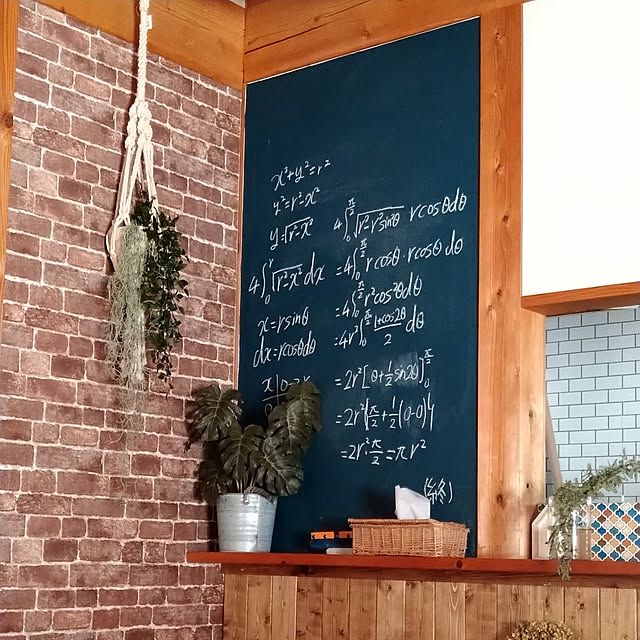 x²+y²=r²
y²=r²-x²
y=√r²-x²
4∫₀ʳ√r²-x² dx
x=rsinθ
dx=rcosθdθ
x|0→r
4∫₀^(π/2)√r²-r²sin²θ rcosθdθ
=4∫₀^(π/2) rcosθ·rcosθdθ
=4∫₀^(π/2) r²cos²θdθ
=4r²∫₀^(π/2) (1+cos2θ)/2 dθ
=2r²[θ+½sin2θ]₀^(π/2)
=2r²{π/2+½(0-0)}
=2r²·π/2=πr²
(終)